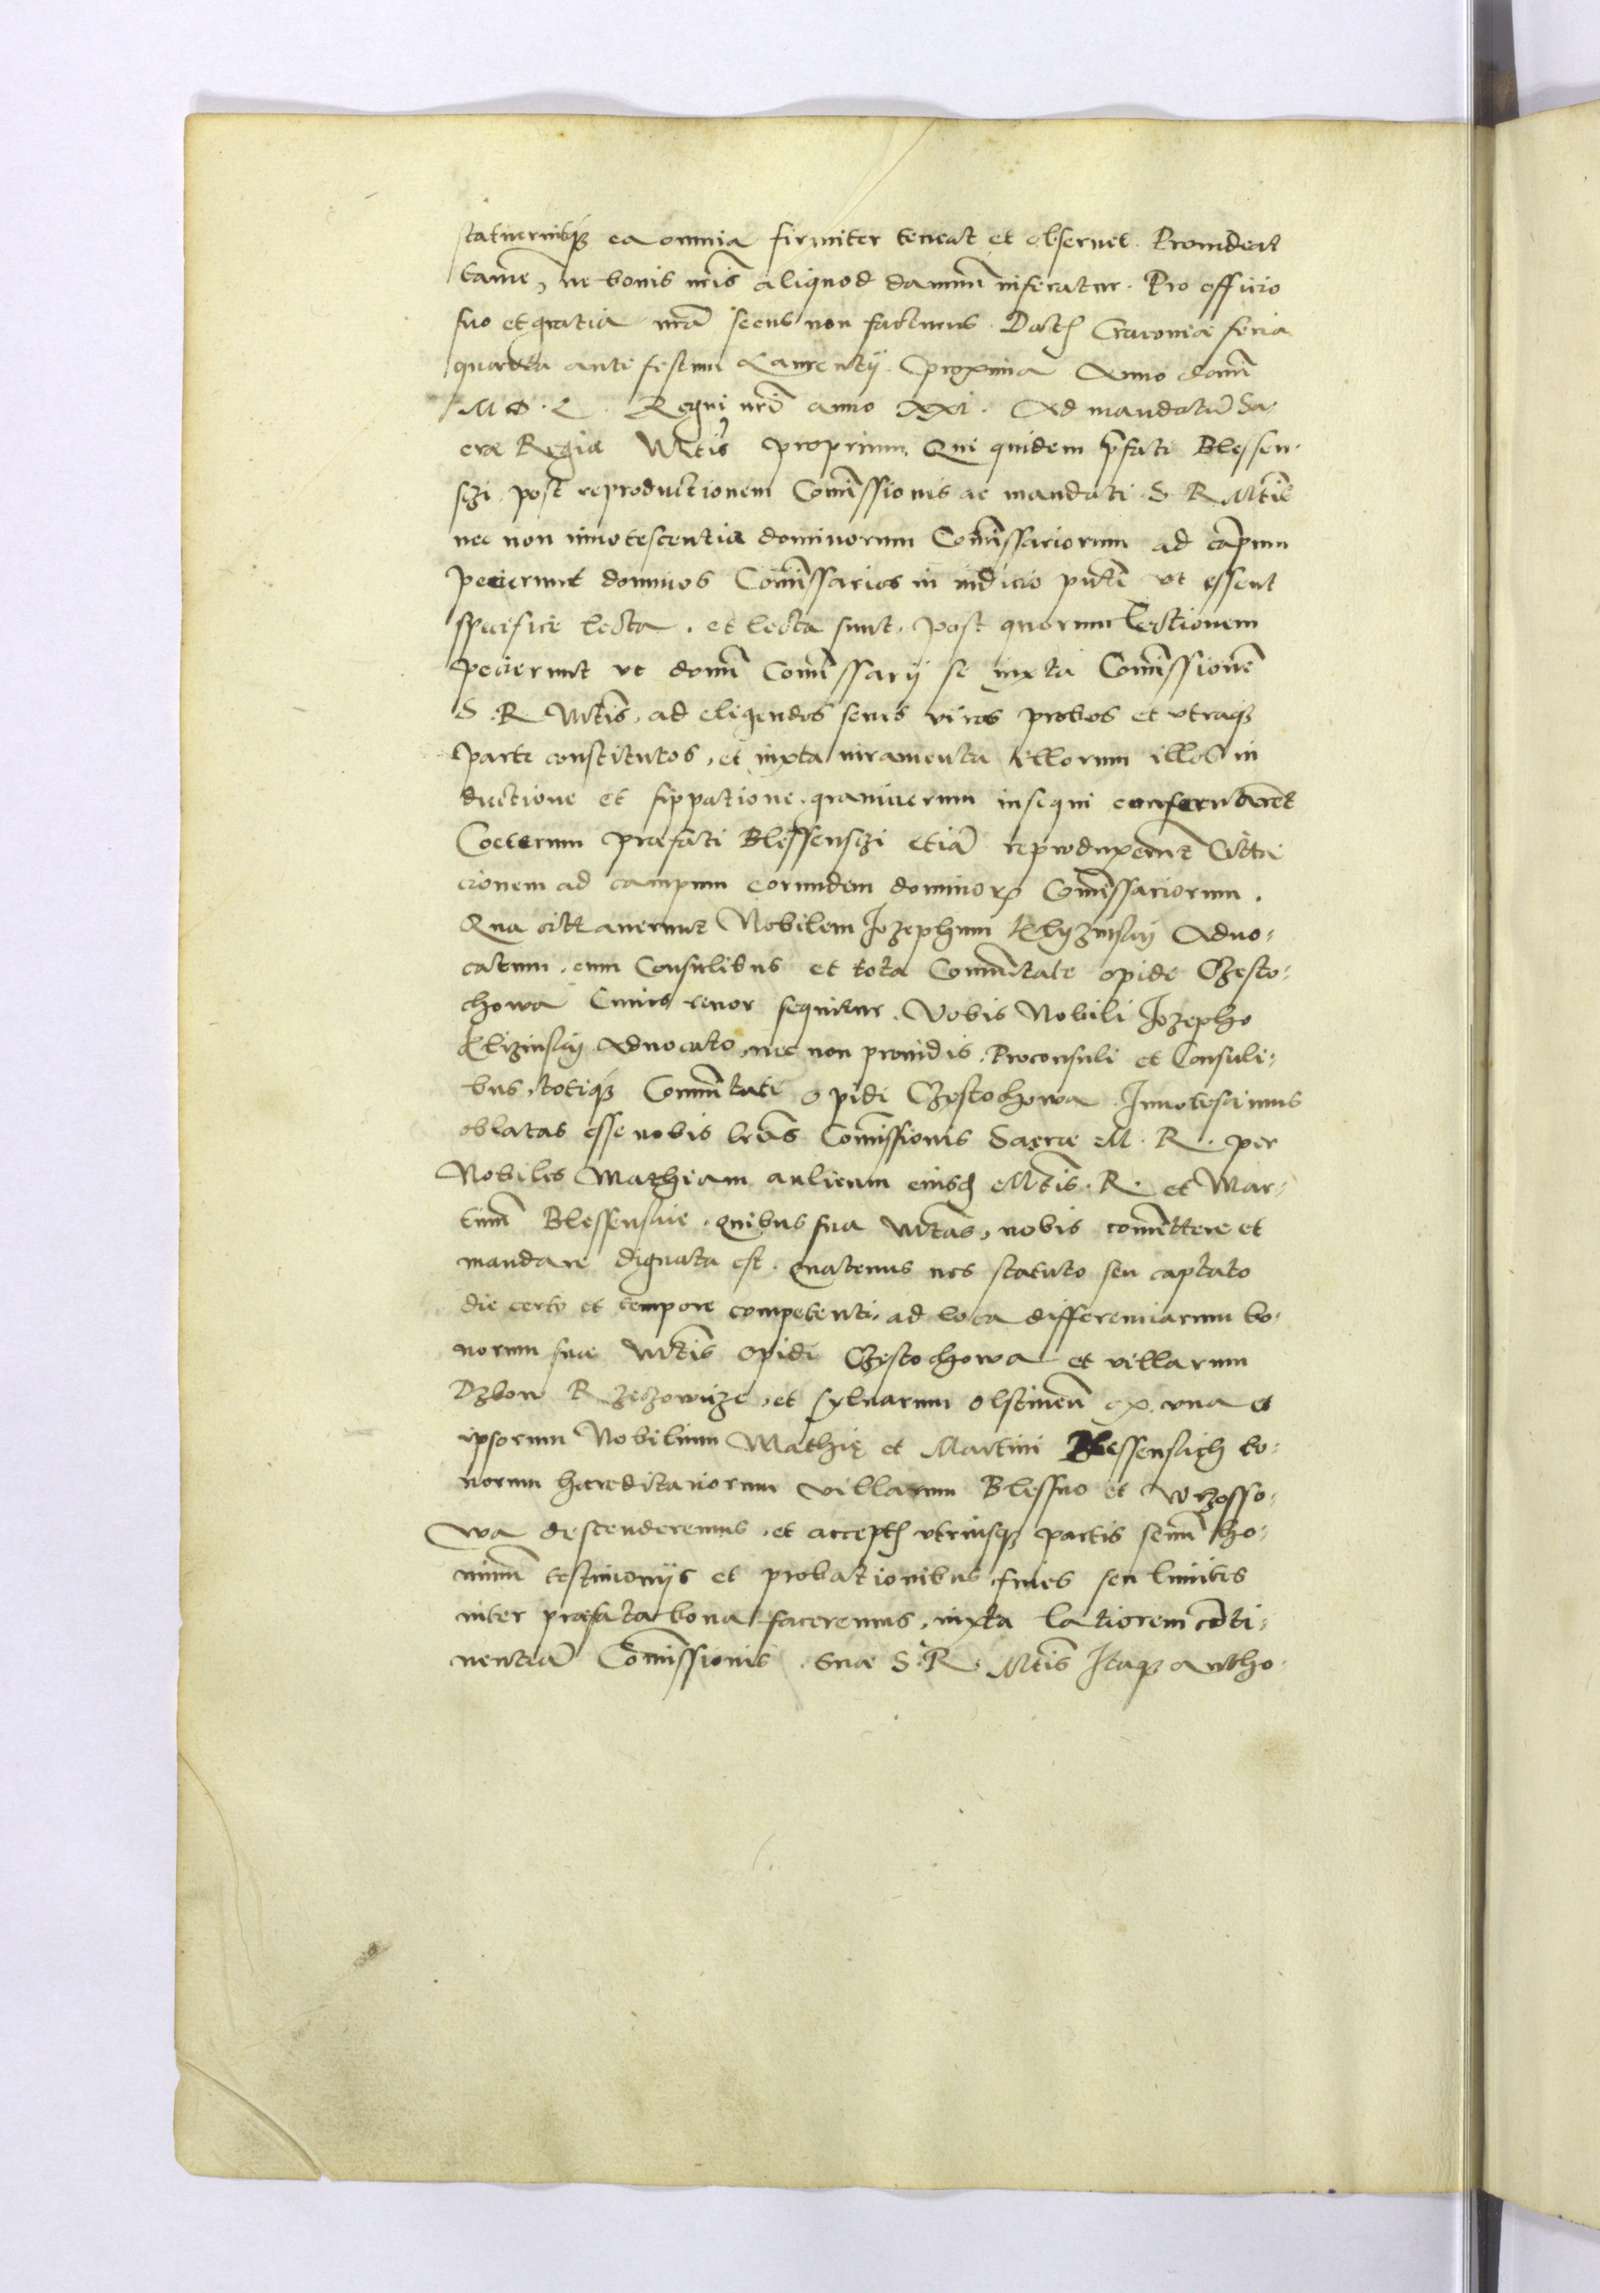 statuerintq; ea omnia firmiter teneat et obseruet. Prouideat
tamē, ne bonis nr̄is aliquod damnū inferatur. Pro officio
suo et gratia nr̄a secus non facturus. Dat Cracouiæ feria
quarta ante festum Laurentij proxima Anno domī
M D. L. Regni nrī anno XXI. Ad mandatū Sa-
cræ Regiæ Mtis proprium. Qui quidem p̄fati Blessen-
szi post reproductionem Com̄issionis ac mandati S R Mtis
nec non innotescentia dominorum Com̄issariorum ad cāpum
pecierunt dominos Com̄issarios in iudicio pntī vt essent
specifice lecta. et lecta sunt. post quorum Lectionem
pecierunt vt domī Com̄issarij se iuxta Com̄issionē
S. R Mtis. ad eligendos senis viros probos et vtraq;
parte constitutos, et iuxta iuramenta illorum illos in
ductione et sippatione granicerum insequi conseruarēt
Coeterum præfati Blessenszi etiā reproduxerunt Citta
cionem ad campum eorundem dominor Com̄issariorum.
Qua cittauerunt Nobilem Jozephum Klyzinsky Aduo-
catum, cum Consulibus et tota Com̄unitate opidi Czesto-
chowa Cuius tenor sequitur. Vobis Nobili Jozepho
Klizinsky Aduocato, nec non prouidis. Proconsuli et Consuli-
bus, totiq; Com̄unitati opidi Czestochowa. Innotescimus
oblatas esse nobis lr̄as Com̄issionis Sacræ M. R. per
Nobiles Mathiam aulicum eiusd Mtis. R. et Mar-
tinū Blessensκie. Quibus sua Mtas, nobis com̄ittere et
mandare dignata est. quatenus nos statuto seu captato
die certo et tempore competenti, ad loca differenciarum bo-
norum suæ Mtis opidi Czestochowa et villarum
Dzbow Rzezowize, et syluarum Olstinen̄ ex vna et
ipsorum Nobilium Mathię et Martini Blessensκich bo-
norum hæreditariorum villarum Blessno et Wrzosso-
wa descenderemus, et accept vtriusq; partis senū ho-
minū testimonijs et probationibus, fines seu limites
inter præfata bona faceremus, iuxta latiorem cōti-
nentiā Com̄issionis. Suæ S. R. Mtis Itaq; autho-